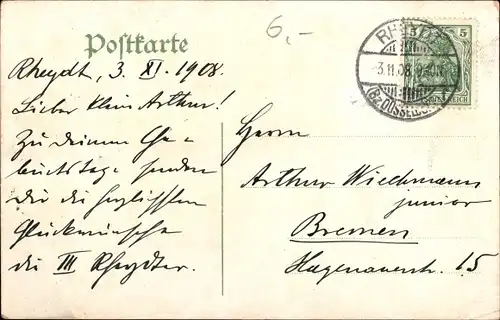 Postkarte
6,-
Rheydt, 3. XI. 1908.
Lieber klein Arthur!
Zu deinem Ge-
burtstage senden
dir die herzlichsten
Glückwünsche
die III Rheydter.
RHEYDT
3.11.08.
(Bz. DÜSSELDORF)
5
Herrn
Arthur Wiechmann
junior
Bremen
Hagenauerstr. 15